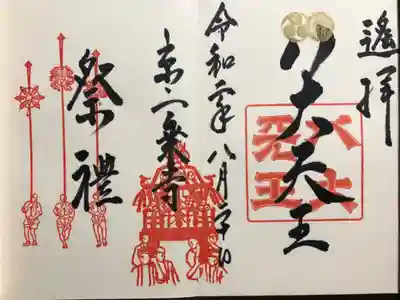 遙拝
八大天王
八大
天王
令和二年八月吉日
京一乗寺
祭禮